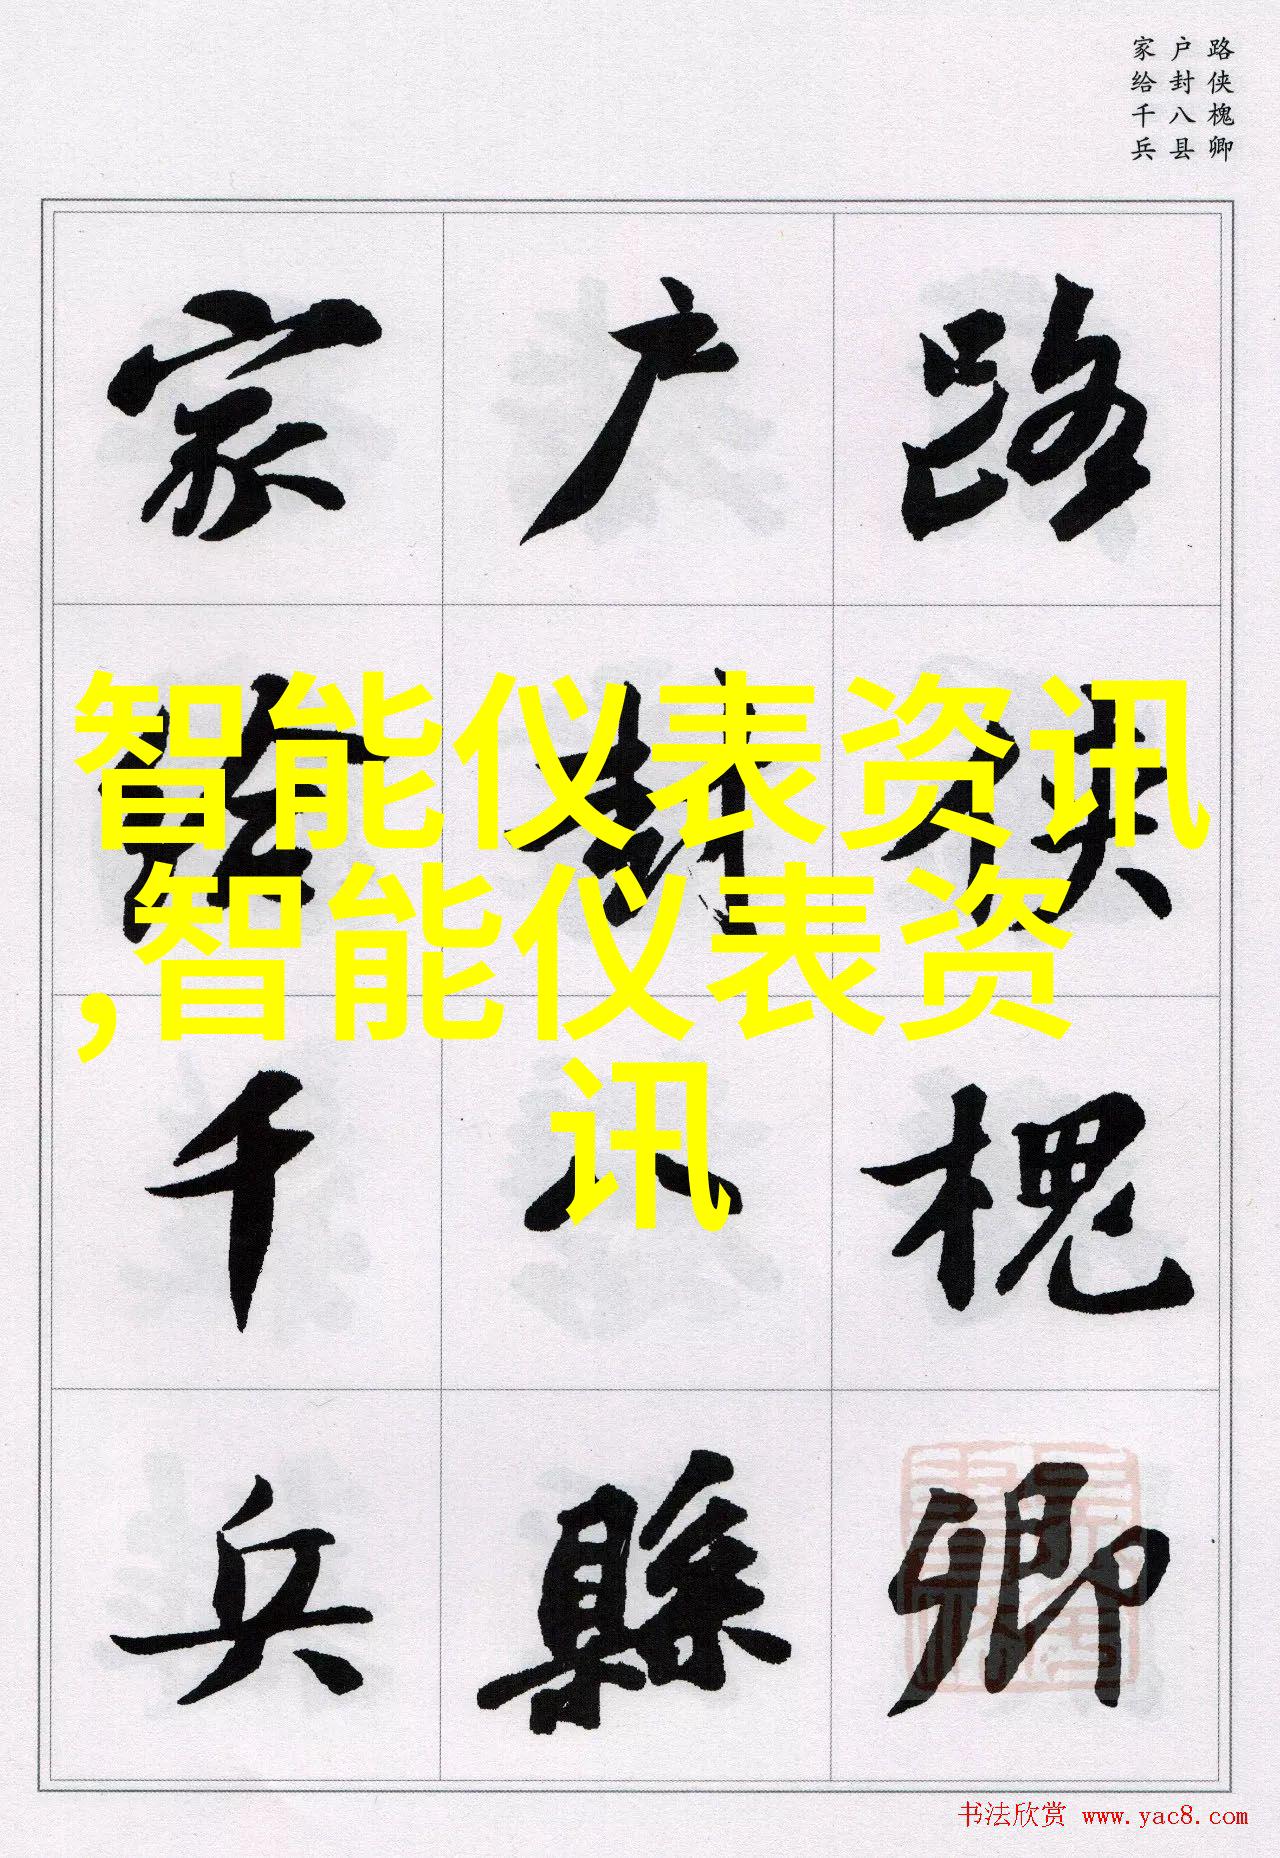 路侠槐卿
户封八县
家给千兵
路侠槐卿
户封八縣
家给千兵
智能仪表资讯
,智能仪表资
讯
书法欣赏 www.yac8.com